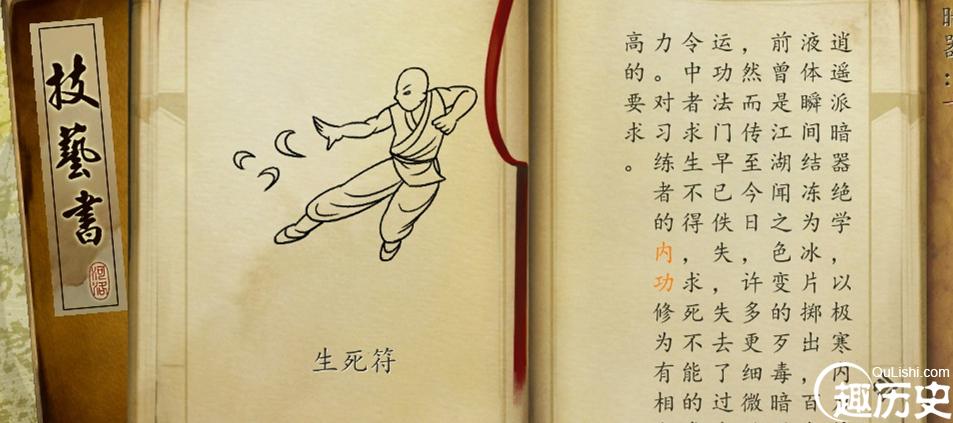 技藝書
河洛
生死符
逍遥派暗器绝学，以极寒内
液体瞬间结冻为冰片掷出，百
前曾是江湖闻之色变的歹毒暗
，然而传至今日，许多更细微
运功法门早已佚失，失去了过
令中者求生不得，求死不能的
力。对习练者的内功修为有相
高的要求。
QuLishi.com
趣历史